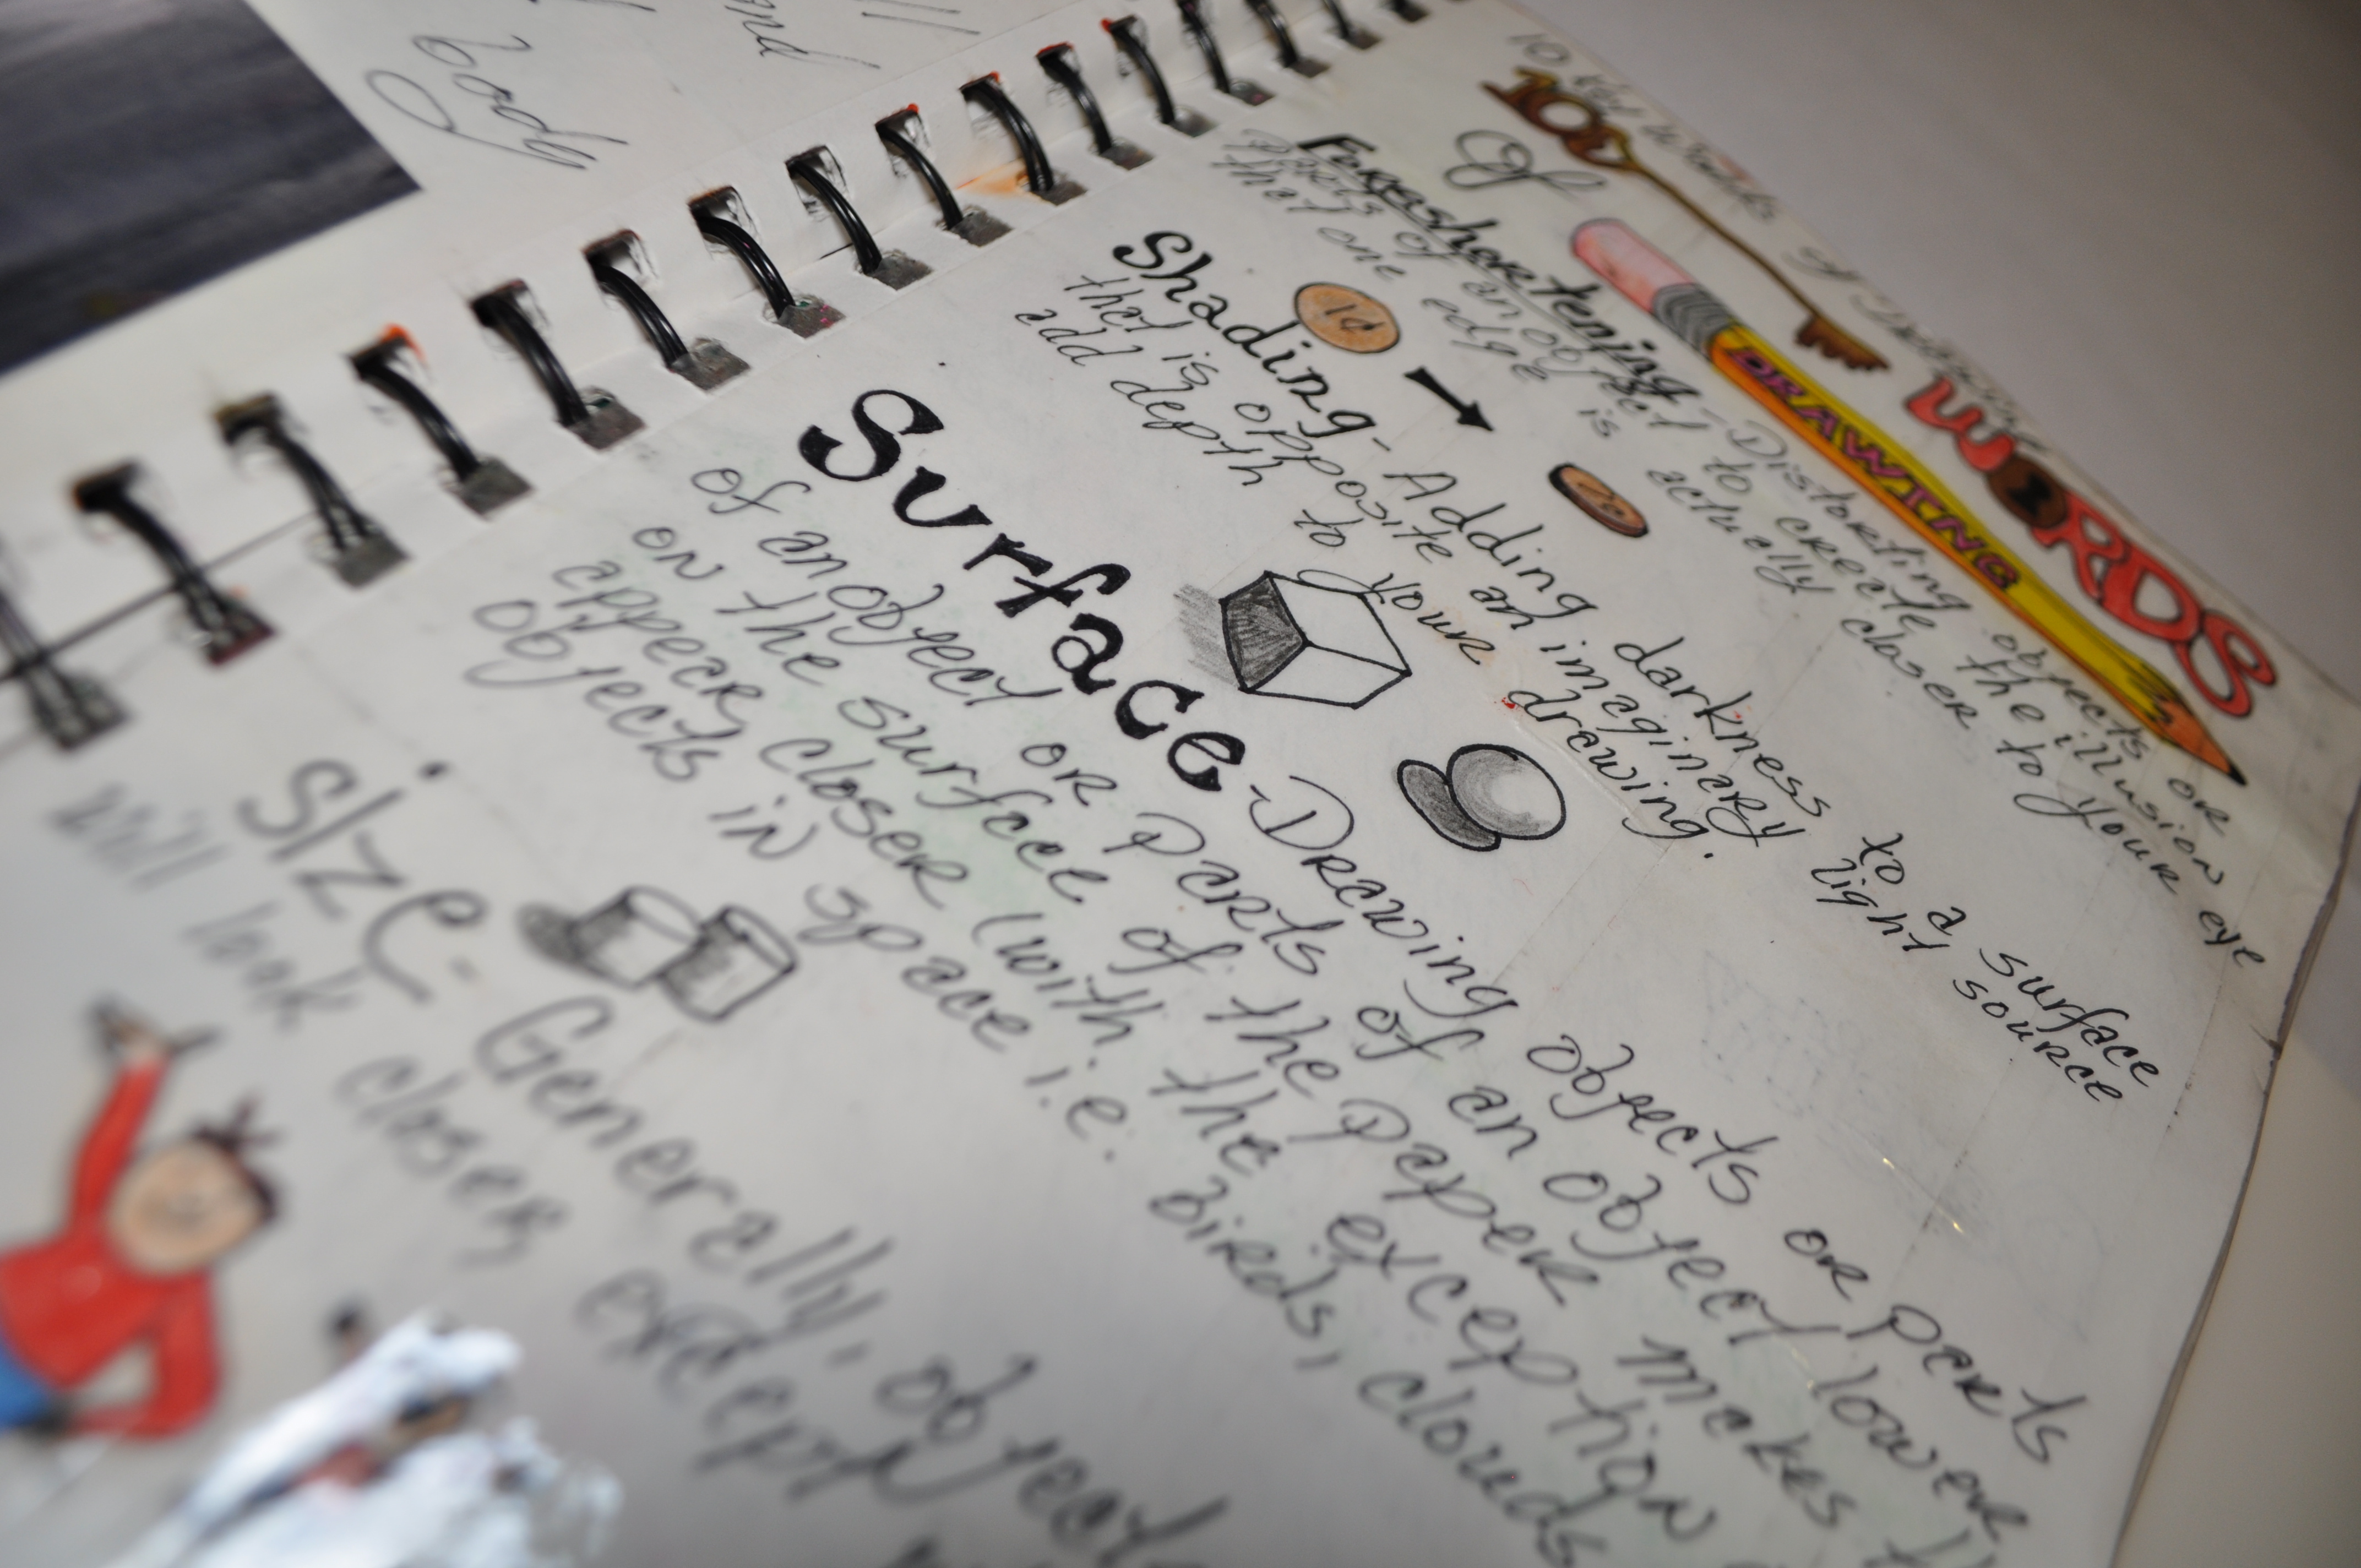 body
10 Key Words of Drawing
10
WORDS
Of
DRAWING
Foreshortening - Distorting objects or
parts of an object to create the illusion
that one edge is actually closer to your eye
1¢
Shading - Adding darkness to a surface
that is opposite an imaginary light source
add depth to your drawing.
Surface - Drawing objects or parts
of an object or parts of an object lower
on the surface of the paper makes
appear closer (with the exception
objects in space i.e. birds, clouds
Size - Generally, objects
will look closer except